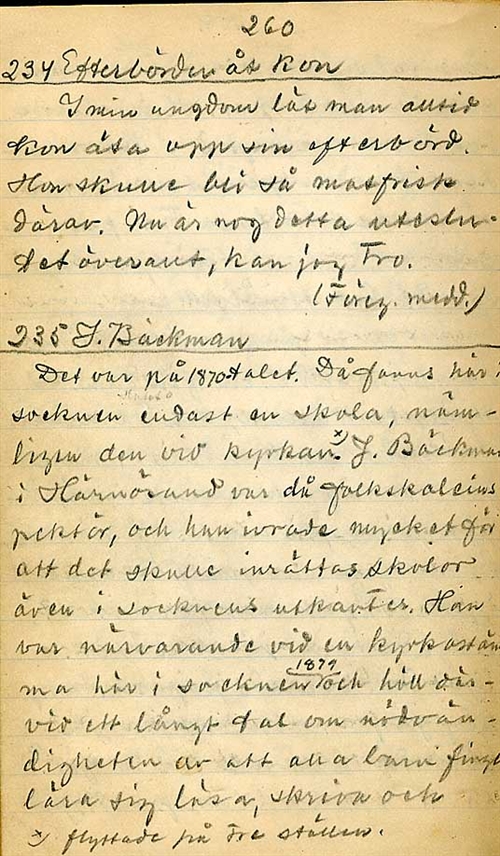 260
234 Efterbörden åt kon
I min ungdom lät man alltid
kon äta upp sin efterbörd.
Hon skulle bli så matfrisk
därav. Nu är nog detta uteslu-
tet överallt, kan jag tro.
(Föreg. medd.)
235 J. Bäckman
Det var på 1870talet. Då fanns här i
socknen endast en skola, näm-
ligen den vid kyrkan. x) J. Bäckman
i Härnösand var då folkskoleins
pektör, och han ivrade mycket för
att det skulle inrättas skolor
även i socknens utkanter. Han
var närvarande vid en kyrkostäm
ma här i socknen 1879 och höll där-
vid ett långt tal om nödvän-
digheten av att alla barn finge
lära sig läsa, skriva och
x) flyttade på tre ställen.